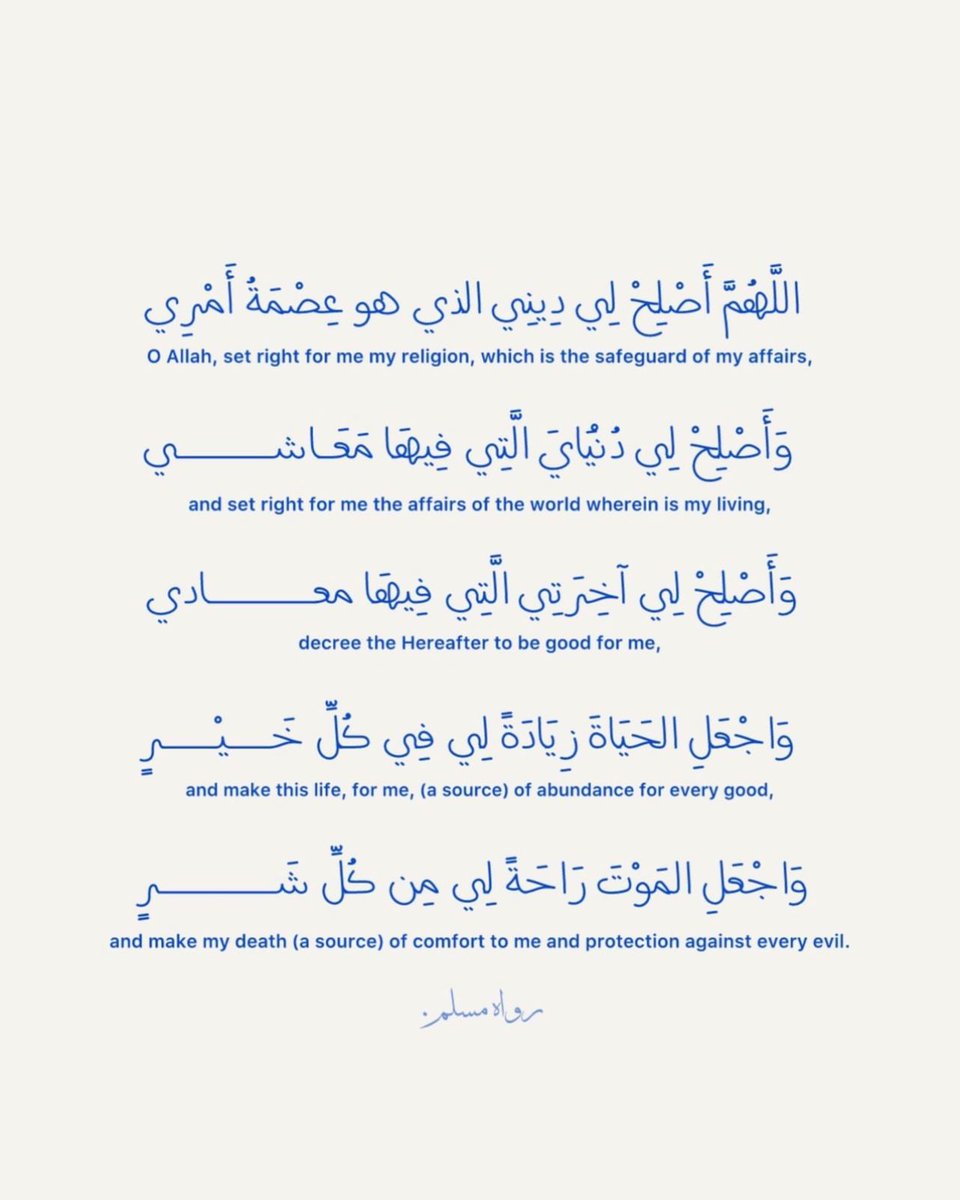 اللَّهُمَّ أَصْلِحْ لِي دِينِي الذي هو عِصْمَةُ أَمْرِي
O Allah, set right for me my religion, which is the safeguard of my affairs,
وَأَصْلِحْ لِي دُنْيَايَ الَّتِي فِيهَا مَعَاشــــــي
and set right for me the affairs of the world wherein is my living,
وَأَصْلِحْ لِي آخِرَتِي الَّتِي فِيهَا معــــــادي
decree the Hereafter to be good for me,
وَاجْعَلِ الحَيَاةَ زِيَادَةً لِي فِي كُلِّ خَــــيْــــرٍ
and make this life, for me, (a source) of abundance for every good,
وَاجْعَلِ المَوْتَ رَاحَةً لِي مِن كُلِّ شَــــــرٍ
and make my death (a source) of comfort to me and protection against every evil.
رواه مسلم.